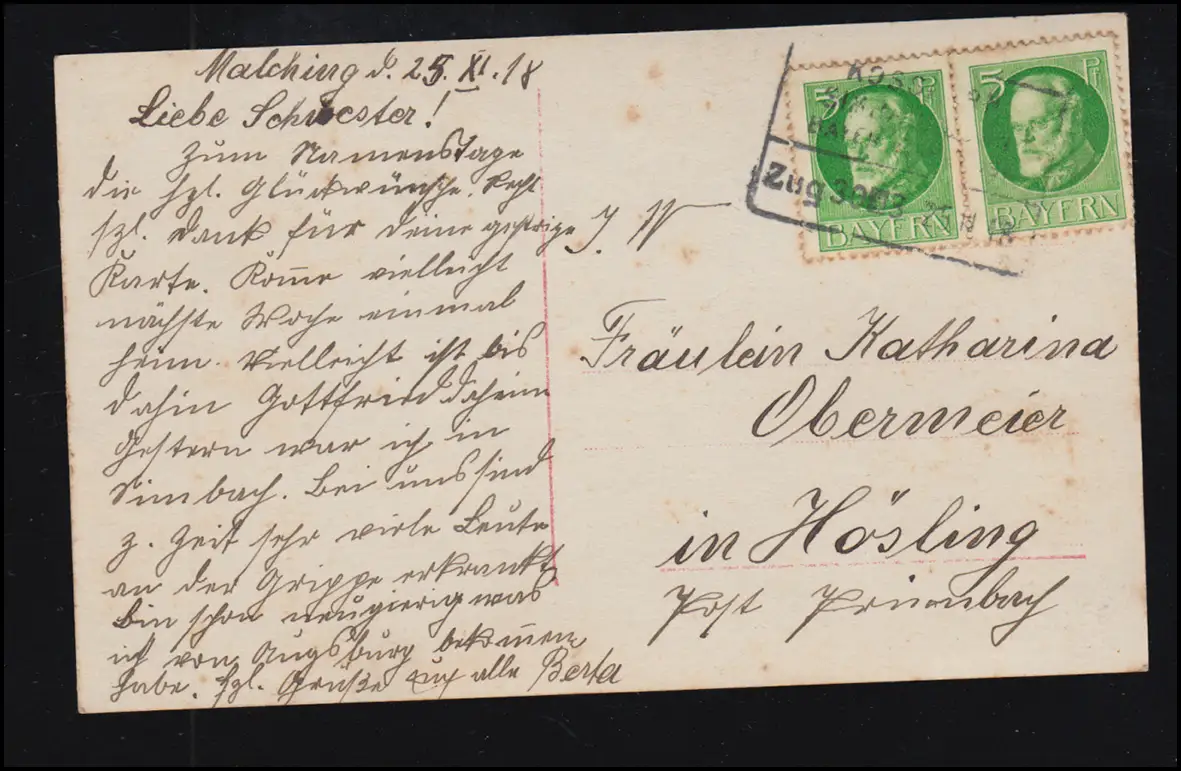 Malching d. 25. XI. 18
Liebe Schwester!
Zum Namenstage
die hzl. Glückwünsche. Recht
hzl. Dank für deine gestrige
Karte. Kom̅e vielleicht
nächste Woche einmal
heim. Vielleicht ist bis
dahin Gottfried daheim
Gestern war ich in
Simbach. Bei uns sind
z. Zeit sehr viele Leute
an der Grippe erkrankt,
bin schon neugierig was
ich von Augsburg bekom̅en
habe. hzl. Grüße auf alle Berta
J. W
Fräulein Katharina
Obermeier
in Hösling
Post
5 Pf
BAYERN
5 Pf
BAYERN
Zug